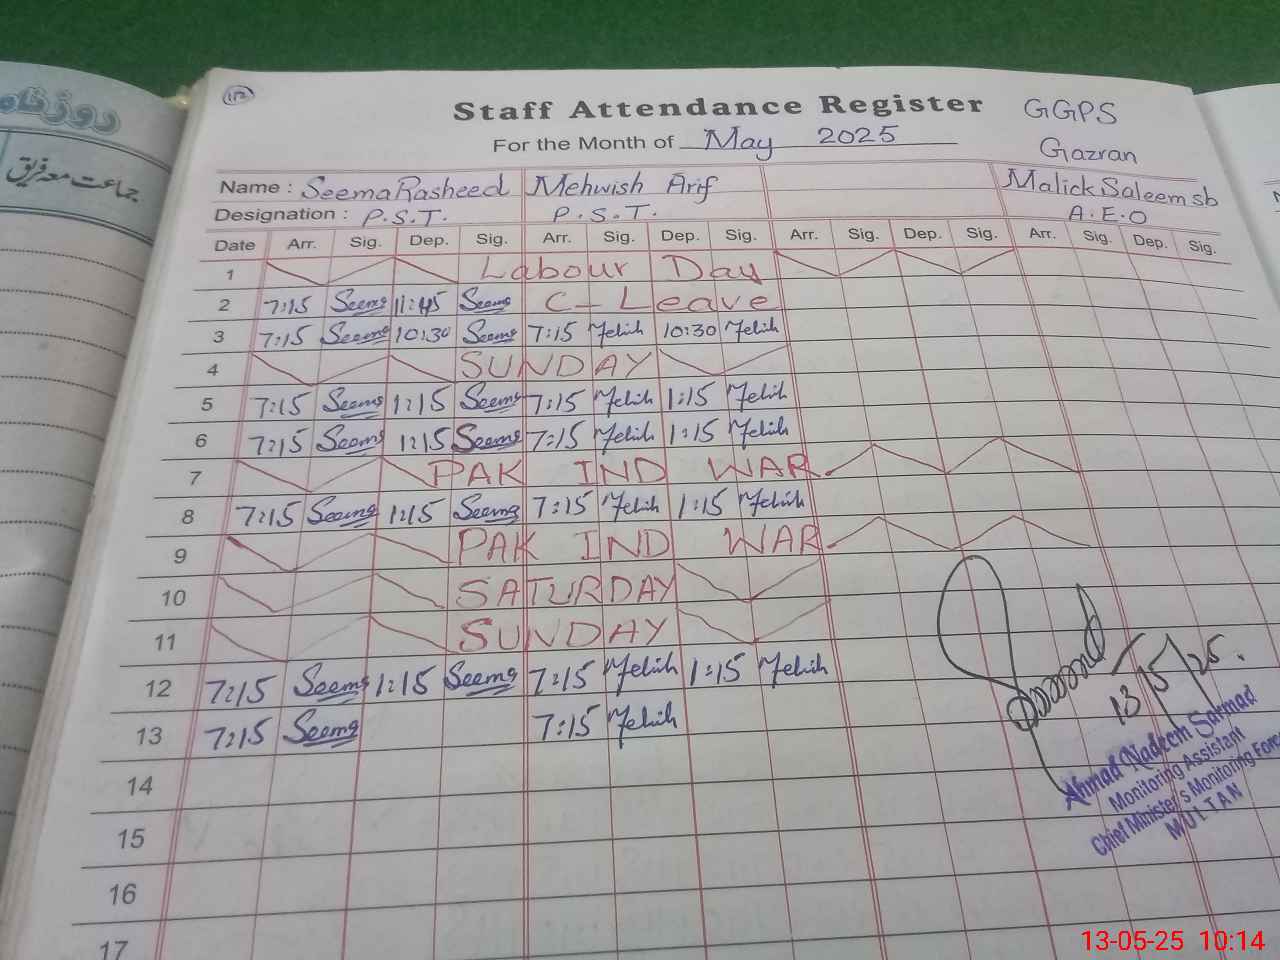 روزنام
جماعت معہ فریق
112
Staff Attendance Register GGPS
For the Month of May 2025 Gazran
Name : Seema Rasheed Mehwish Arif Malick Saleem sb
Designation : P.S.T. P.S.T. A.E.O
Date Arr. Sig. Dep. Sig. Arr. Sig. Dep. Sig. Arr. Sig. Dep. Sig. Arr. Sig. Dep. Sig.
1 Labour Day
2 7:15 Seema 11:45 Seema C-Leave
3 7:15 Seema 10:30 Seema 7:15 10:30
4 SUNDAY
5 7:15 Seema 1:15 Seema 7:15 1:15
6 7:15 Seema 1:15 Seema 7:15 1:15
7 PAK IND WAR
8 7:15 Seema 1:15 Seema 7:15 1:15
9 PAK IND WAR
10 SATURDAY
11 SUNDAY
12 7:15 Seema 1:15 Seema 7:15 1:15
13 7:15 Seema 7:15
14
15
16
17
13/5/25.
Ahmad Nadeem Sarmad
Monitoring Assistant
Chief Minister's Monitoring Force
MULTAN
13-05-25 10:14